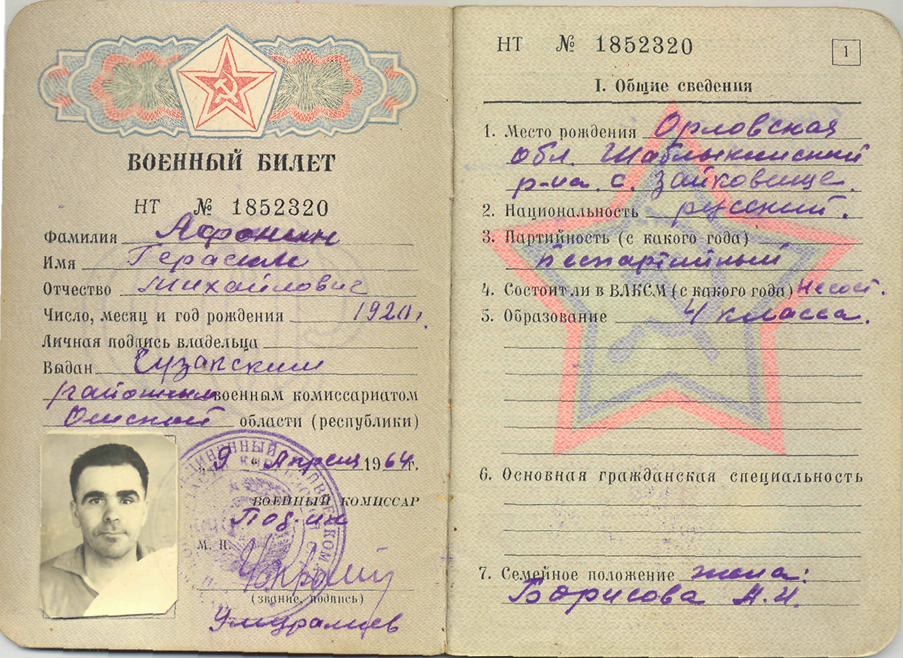 ВОЕННЫЙ БИЛЕТ
НТ № 1852320
Фамилия Афонин
Имя Герасим
Отчество Михайлович
Число, месяц и год рождения 1920г.
Личная подпись владельца
Выдан Сузакским
районным военным комиссариатом
Ошской области (республики)
„9“ Апреля 1964г.
ВОЕННЫЙ КОМИССАР
Под-ик
М. П.
(звание, подпись)
НТ № 1852320
1
I. Общие сведения
1. Место рождения Орловская
обл. Шаблыкинский
р-на с. Зайковище.
2. Национальность русский.
3. Партийность (с какого года)
беспартийный
4. Состоит ли в ВЛКСМ (с какого года) Не сост.
5. Образование 4 класса.
6. Основная гражданская специальность
7. Семейное положение жена:
Борисова А.И.